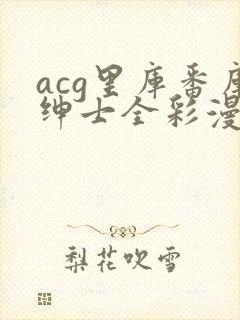 acg里库番库
绅士全彩漫
梨花吹雪